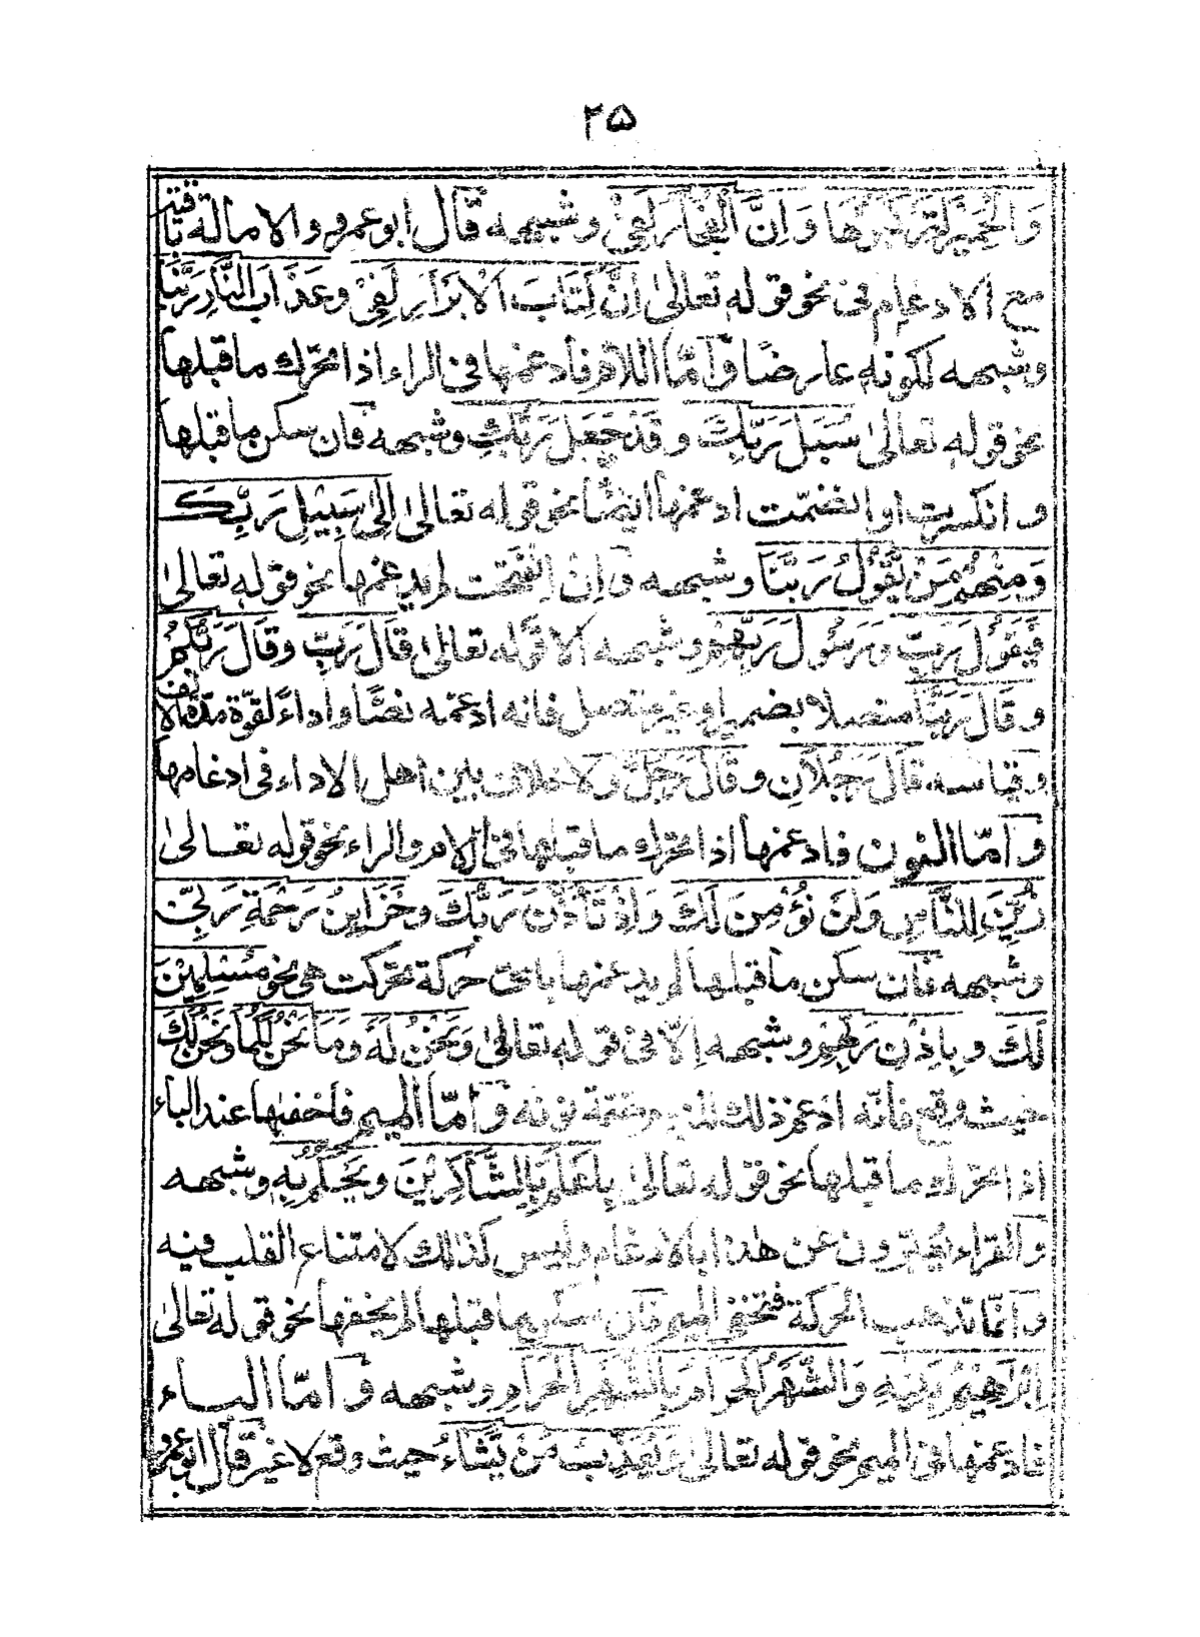 ٢٥
وَالْحَمِيْرَ لِتَرْكَبُوْهَا وَاِنَّ الْفُجَّارَ لَفِيْ وشبهه قال ابو عمرو والامالة باقية
مع الادغام فى نحو قوله تعالى اِنَّ كِتَابَ الْاَبْرَارِ لَفِيْ وعَذَابَ النَّارِ رَبَّنَا
وشبهه لكونه عارضًا وَاَمَّا اللام فادغمها فى الراء اذا تحرك ما قبلها
نحو قوله تعالى سُبُلَ رَبِّكِ و قَدْ جَعَلَ رَبُّكِ وشبهه فان سكن ما قبلها
و انكسرت او انضمّت ادغمها ايضًا نحو قوله تعالى اِلٰى سَبِيْلِ رَبِّكَ
وَمِنْهُمْ مَنْ يَّقُوْلُ رَبَّنَا وشبهه وَاِنْ اِنْفَتَحَت لم يدغمها نحو قوله تعالى
فَيَقُوْلَ رَبِّ وَرَسُوْلَ رَبِّهِمْ وشبهه الا قوله تعالى قَالَ رَبِّ وقَالَ رَبُّكُمْ
و قَالَ رَبُّنَا متصلا بضمير او غير متصل فانه ادغمه نصًّا واداءً لقوّة مدّة الالف
وقياسه قَالَ رَجُلَانِ و قَالَ رَجُلٌ ولا خلاف بين اهل الاداء فى ادغامها
وَامّا النون فادغمها اذا تحرك ما قبلها فى اللام والراء نحو قوله تعالى
زُيِّنَ لِلنَّاسِ وَلَنْ نُؤْمِنَ لَكَ وَاِذْ تَاَذَّنَ رَبُّكَ وخَزَائِنُ رَحْمَةِ رَبِّيْ
وشبهه فَان سكن ما قبلها لم يدغمها باىّ حركة تحركت هى نحو مُسْلِمَيْنَ
لَكَ و بِاِذْنِ رَبِّهِمْ وشبهه اِلّا فى قوله تعالى وَنَحْنُ لَهُ و وَمَا نَحْنُ لَكُمَا ونَحْنُ لَكَ
حيث وقع فانّه ادغم ذلك للزوم ضمّة نونه وَامّا الميم فاخفاها عند الباء
اذا تحرك ما قبلها نحو قوله تعالى بِاَعْلَمَ بِالشَّاكِرِيْنَ و يَحْكُمُ بِهِ وشبهه
والقراء يعبّرون عن هذا بالادغام وليس كذلك لامتناع القلب فيه
وَانّما تذهب الحركة فتخفى الميم فان سكن ما قبلها لم يخفها نحو قوله تعالى
اِبْرَاهِيْمُ بَنِيْهِ وَالشَّهْرُ الْحَرَامُ بِالشَّهْرِ الْحَرَامِ وشبهه وَ امّا البـاء
فادغمها فى الميم نحو قوله تعالى وَيُعَذِّبُ مَنْ يَّشَاءُ حيث وقع لا غير قال ابو عمرو